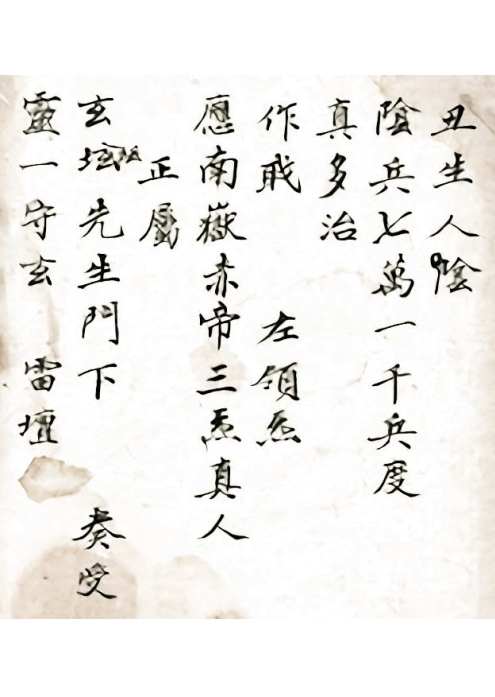 丑生人陰
陰兵七萬一千兵度
真多治
作戝 左領炁
應南嶽赤帝三炁真人
正屬
玄壇先生門下 奏受
靈一守玄 雷壇